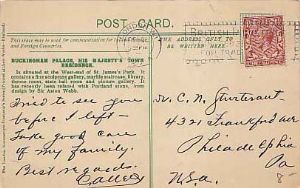 POST CARD.
This space may be used for communication for
and Foreign Countries.
THE ADDRESS ONLY TO
BE WRITTEN HERE
BRITISH
BUCKINGHAM PALACE, HIS MAJESTY'S TOWN
RESIDENCE.
Is situated at the West-end of St. James's Park. It
contains a fine sculpture gallery, marble staircase, library,
throne room, state ball room and picture gallery. It
has recently been refaced with Portland stone, from
design by Sir Aston Webb.
Tried to see you
before I left -
Take good care
of my family.
Best regards
Mr. C. N. Sturtevant
4321 Frankford Ave
Philadelphia
Pa
U.S.A.
8-